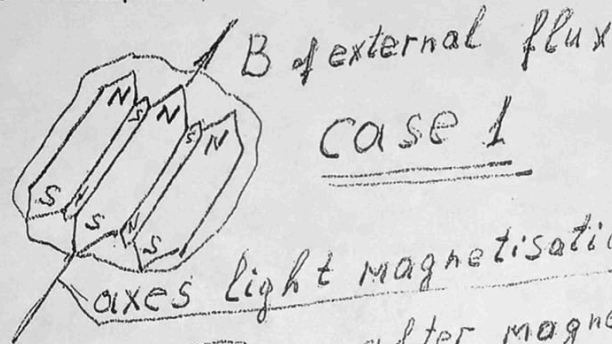 B of external flux
case 1
N
N
S
S
N
S
S
N
S
axes light magnetisatio
after magne